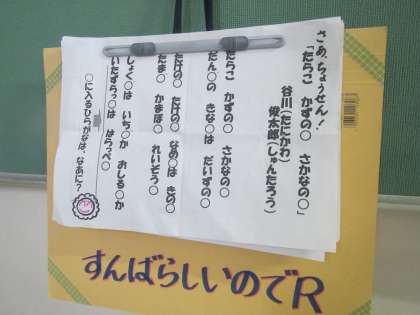 さぁ、ちょうせん!!
「たらこ かずの○ さかなの○」
谷川(たにかわ)
俊太郎(しゅんたろう)
たらこ かずの○ さかなの○
だん○の きな○は だいずの○
たけの○ たけの○ なめ○は きの○
たま○ かまぼ○ れいぞう○
しょく○は いち○か おしる○か
いたずらっ○は はらっぺ○
○に入るひらがなは、なあに?
すんばらしいのでR